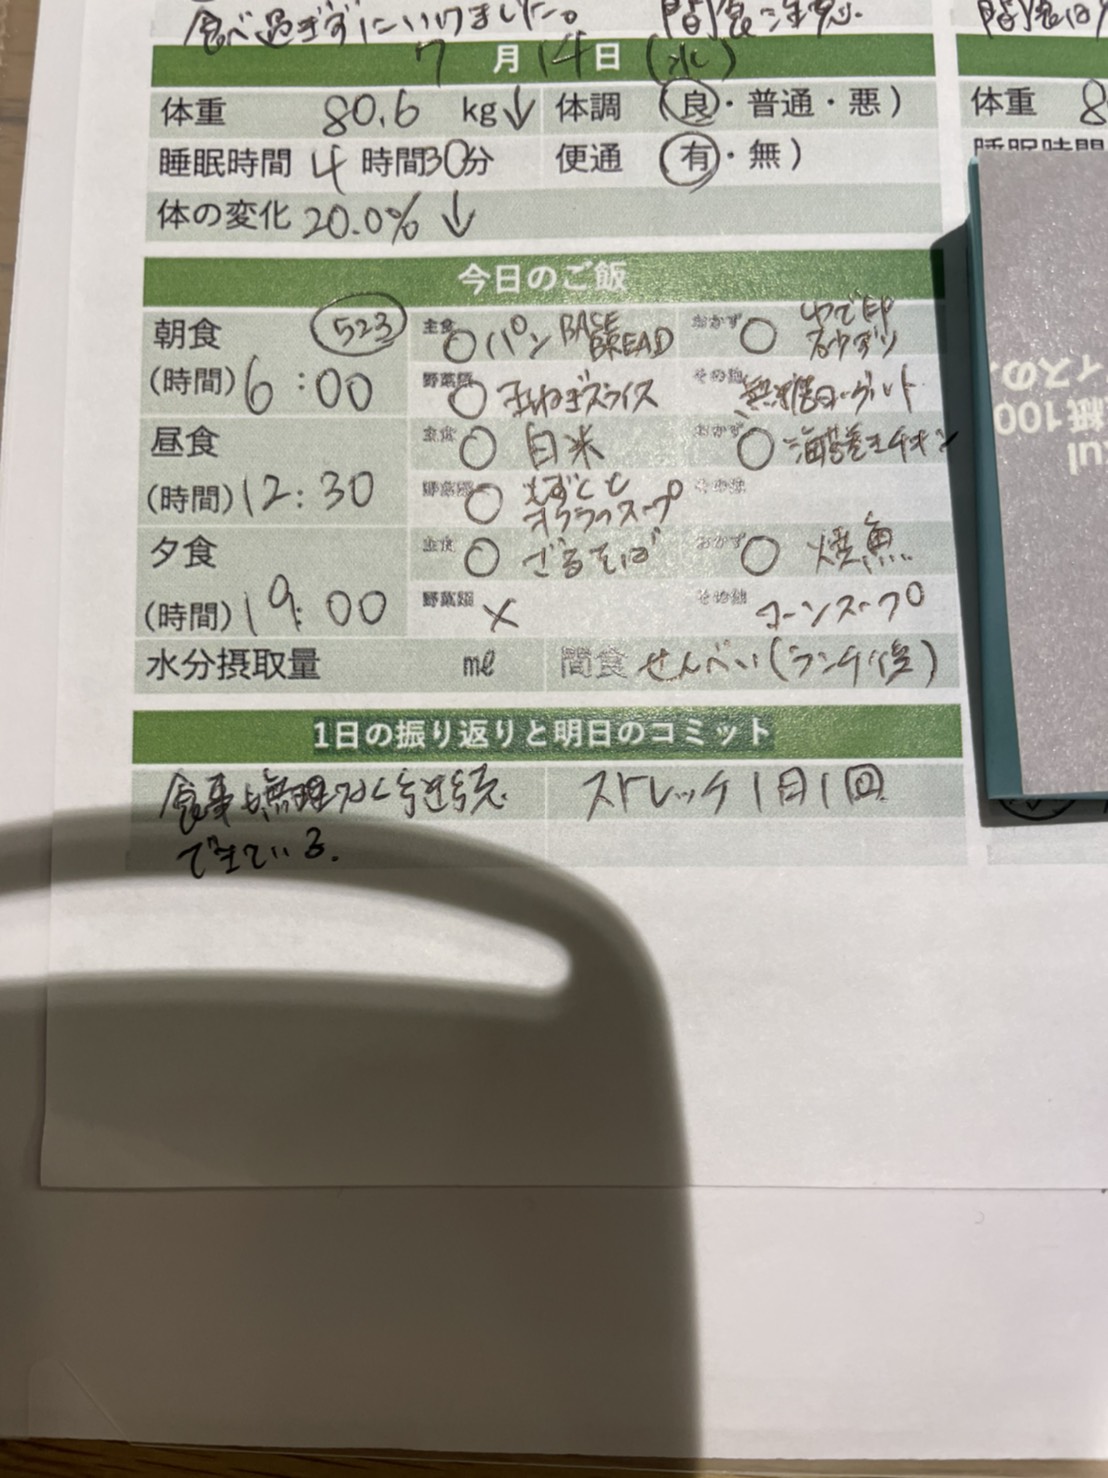 食べ過ぎずにいけました。 間食に注意.
7月14日(水)
体重 80.6 kg↓ 体調 (良・普通・悪)
睡眠時間 4時間30分 便通 (有・無)
体の変化 20.0% ↓
今日のご飯
朝食 523 主食 ○ パン BASE BREAD おかず ○ ゆで卵
(時間) 6:00 野菜類 ○ 玉ねぎスライス その他 無糖ヨーグルト
昼食 主食 ○ 白米 おかず ○ 海苔巻きチキン
(時間) 12:30 野菜類 ○ もずくと オクラのスープ その他
夕食 主食 ○ ざるそば おかず ○ 焼魚
(時間) 19:00 野菜類 × その他 コーンスープ
水分摂取量 ml 間食 せんべい(ランチ後)
1日の振り返りと明日のコミット
食事も無理なく継続 ストレッチ1日1回
できている.
体重 8
睡眠時間